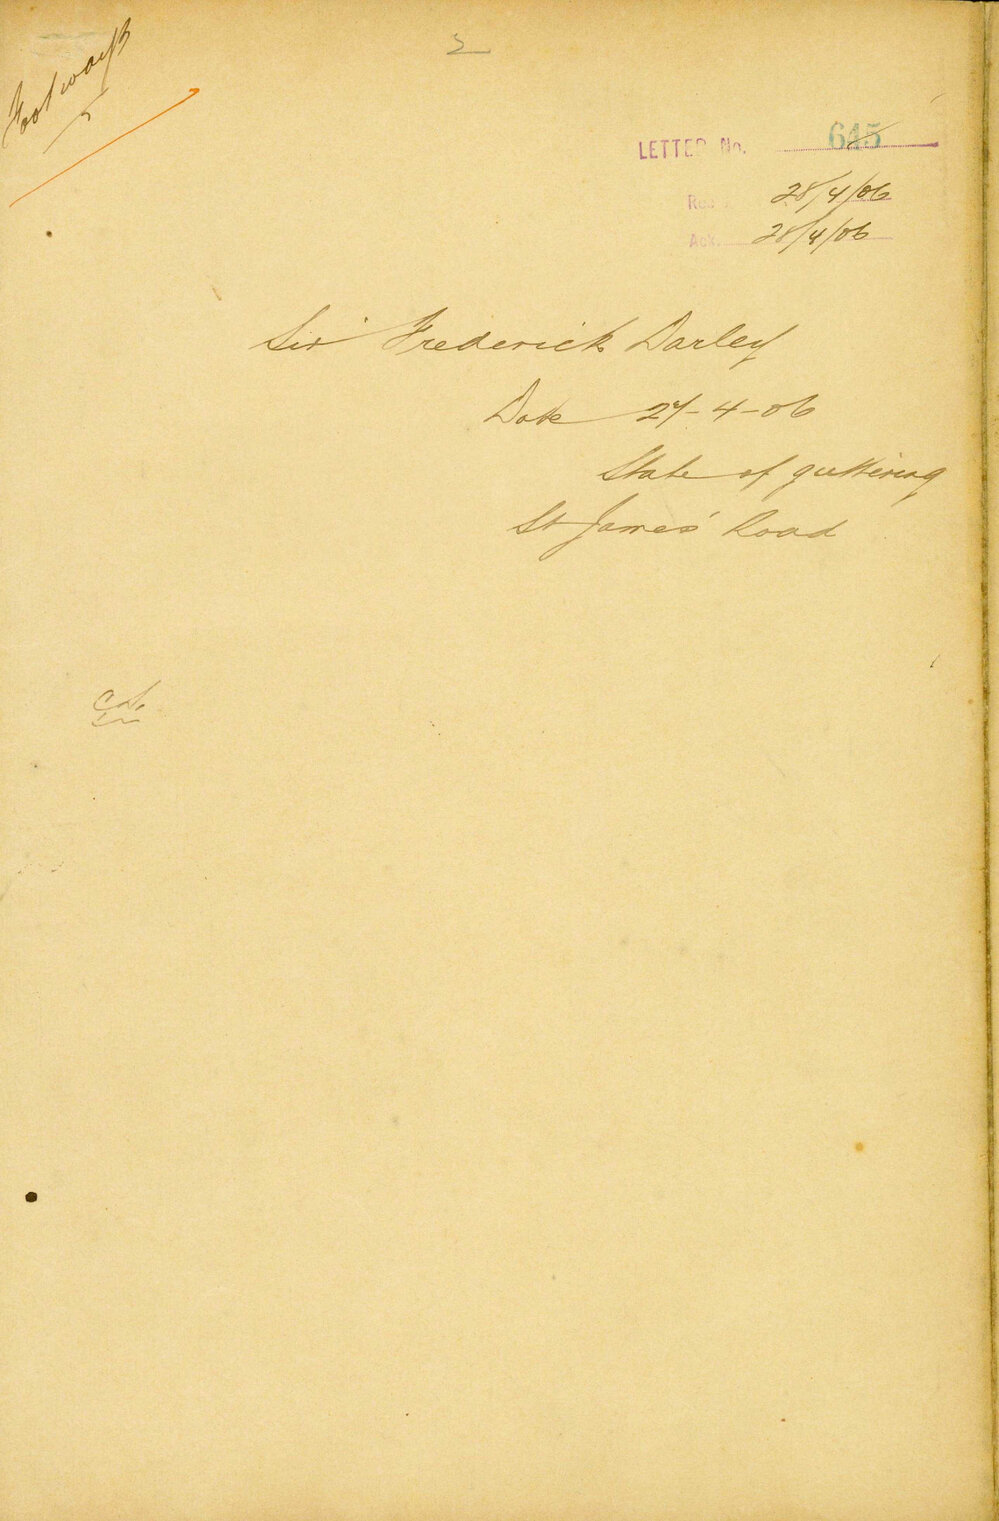 Footways
2
LETTER No. 645
Rec 28/4/06
Ack. 28/4/06
Sir Frederick Darley
Date 27-4-06
State of guttering
St James' Road